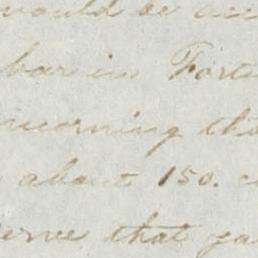 would be
bar in Fort
ncerning the
about 150. c
erve that ga